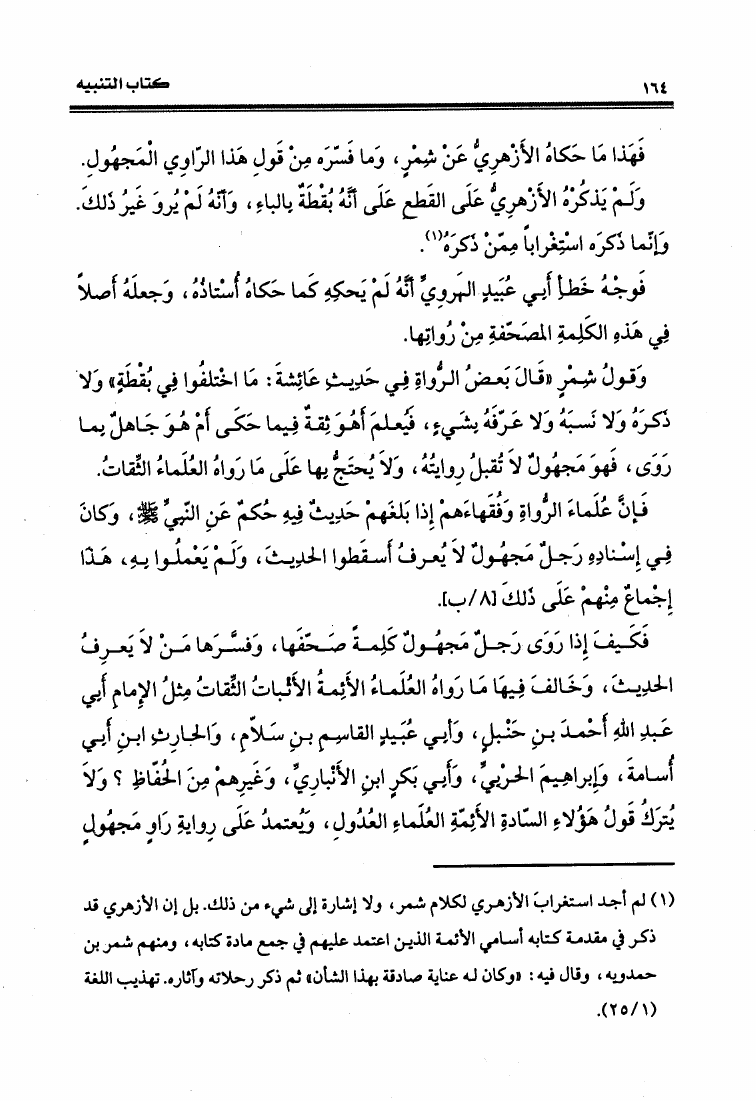 ١٦٤ كتاب التنبيه
فَهَذا مَا حَكاهُ الأَزْهرِيُّ عَنْ شِمْرٍ، وَما فَسّرَه مِنْ قَولِ هَذا الرّاوِي الْمَجهُولِ.
وَلَمْ يَذكُرْهُ الأَزْهرِيُّ عَلَى القَطعِ عَلَى أَنَّهُ بُقْطَةٌ بِالباءِ، وَأنّهُ لَمْ يُروَ غَيرُ ذَلكَ.
وَإنّما ذَكرَه اسْتِغْراباً مِمّنْ ذَكرَهُ(١).
فَوجْهُ خَطأِ أَبي عُبَيدٍ الهَرويِّ أنّهُ لَمْ يَحكِهِ كَما حَكاهُ أُستاذُهُ، وَجعلَهُ أَصلاً
فِي هَذهِ الكَلِمةِ المصَحّفةِ مِنْ رُواتِها.
وَقولُ شِمْرٍ «قَالَ بَعضُ الرُّواةِ فِي حَديثِ عَائِشةَ: مَا اختَلفُوا فِي بُقْطَةٍ» وَلا
ذكرَهُ وَلا نَسبَهُ وَلا عَرّفَهُ بِشَيءٍ، فَيُعلمَ أَهُوَ ثِقةٌ فِيما حَكَى أَمْ هُوَ جَاهلٌ بِما
رَوَى، فَهوَ مَجهُولٌ لاَ تُقبلُ رِوايتُهُ، وَلاَ يُحتَجُّ بِها عَلَى مَا رَواهُ العُلَماءُ الثِّقاتُ.
فَإنَّ عُلَماءَ الرُّواةِ وَفُقَهاءَهمْ إذَا بَلغَهمْ حَديثٌ فِيهِ حُكمٌ عَنِ النّبِيِّ ﷺ، وَكانَ
فِي إسْنادِهِ رَجلٌ مَجهُولٌ لاَ يُعرفُ أَسقَطوا الحَديثَ، وَلَمْ يَعْملُوا بِهِ، هَذَا
إِجْماعٌ مِنْهمْ عَلَى ذَلكَ [٨/ب].
فَكَيفَ إذَا رَوَى رَجلٌ مَجهُولٌ كَلِمةً صَحّفَها، وَفسَّرَها مَنْ لاَ يَعرِفُ
الحَديثَ، وَخَالفَ فِيهَا مَا رَواهُ العُلَماءُ الأئِمةُ الأثْباتُ الثِّقاتُ مِثْلُ الإمَامِ أَبي
عَبدِ اللهِ أَحْمدَ بنِ حَنْبلٍ، وَأَبي عُبَيدٍ القَاسِمِ بنِ سَلاّمٍ، وَالحَارثِ ابنِ أَبي
أُسامةَ، وَإبْراهِيمَ الحَربيِّ، وَأَبي بَكرٍ ابنِ الأنْبارِيِّ، وَغَيرِهمْ مِنَ الحُفّاظِ ؟ وَلاَ
يُترَكُ قَولُ هَؤُلاءِ السّادةِ الأئِمّةِ العُلَماءِ العُدُولِ، وَيُعتمدُ عَلَى رِوايةِ رَاوٍ مَجهُولٍ
(١) لم أجد استغرابَ الأزهري لكلام شمر، ولا إشارة إلى شيء من ذلك. بل إن الأزهري قد
ذكر في مقدمة كتابه أسامي الأئمة الذين اعتمد عليهم في جمع مادة كتابه، ومنهم شمر بن
حمدويه، وقال فيه: «وكان له عناية صادقة بهذا الشأن» ثم ذكر رحلاته وآثاره. تهذيب اللغة
(٢٥/١).